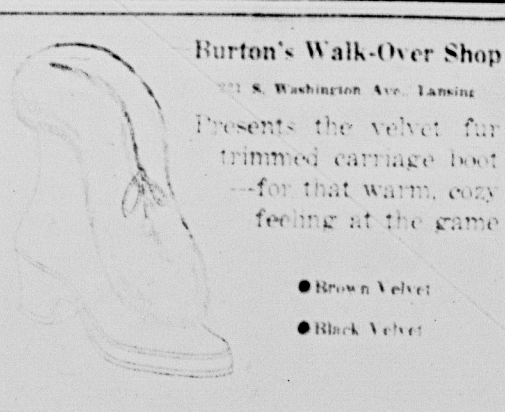 Burton's Walk-Over Shop
S. Washington Ave., Lansing
Presents the velvet fur
trimmed carriage boot
—for that warm, cozy
feeling at the game
●Brown Velvet
●Black Velvet